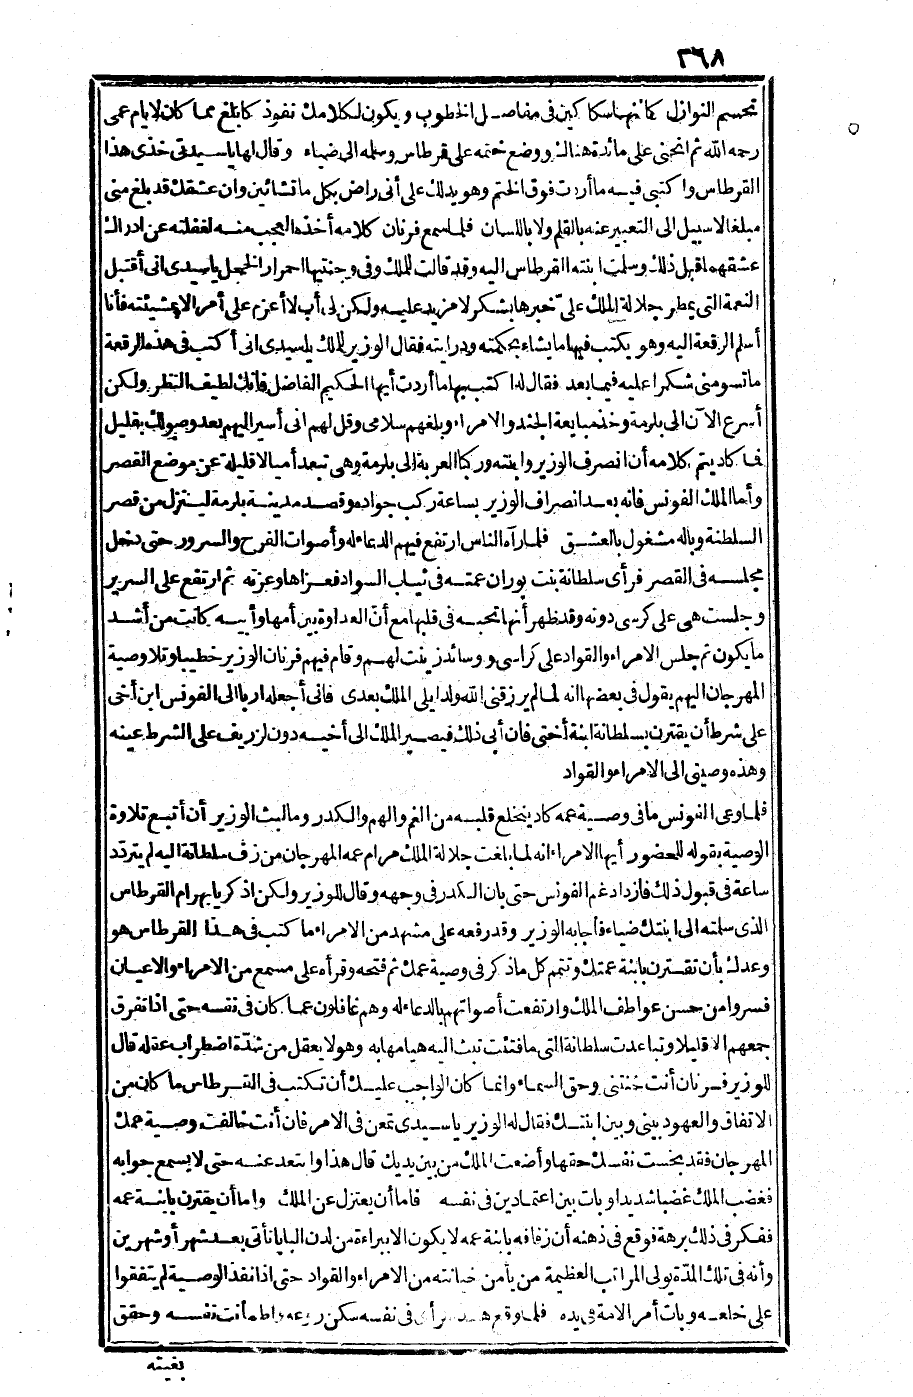 ٣٦٨
تحسيم النوازل كأنها سكاكين في مفاصل الخطوب ويكون لكلامك نفوذ كابلغ مما كان لايام عمى
رحمه الله ثم انحنى على مائدة هنالك ووضع ختمه على قرطاس وسلمه الى ضياء وقال لها يا سيدتى خذى هذا
القرطاس واكتبى فيه ما أردت فوق الختم وهو يدلك على أنى راض بكل ما تشائين وان عشقك قد بلغ منى
مبلغا لا سبيل الى التعبير عنه بالقلم ولا باللسان فلما سمع فرنان كلامه أخذه العجب منه لغفلته عن ادراك
عشقهما قبل ذلك وسلمت ابنته القرطاس اليه وقد قالت للملك وفى وجنتيها احمرار الخجل يا سيدى انى أقتبل
النعمة التى يمطر جلالة الملك علىّ خيرها بشكر لا مزيد عليه ولكن لى أب لا أعزم على أمر الا بمشيئته فأنا
أسلم الرقعة اليه وهو يكتب فيها ما يشاء بحكمته ودرايته فقال الوزير للملك يا سيدى انى أكتب فى هذه الرقعة
ما تسومنى شكرا عليه فيما بعد فقال له اكتب بها ما أردت أيها الحكيم الفاضل فانك لطيف النظر ولكن
أسرع الآن الى بلرمة وخذ مبايعة الجند والامراء وبلغهم سلامى وقل لهم انى أسير اليهم بعد وصولك بقليل
فما كاد يتم كلامه أن انصرف الوزير وابنته وركبا العربة الى بلرمة وهى تبعد أميالا قليلة عن موضع القصر
وأما الملك الفونس فانه بعد انصراف الوزير بساعة ركب جواده وقصد مدينة بلرمة لينزل من قصر
السلطنة وباله مشغول بالعشق فلما رآه الناس ارتفع فيهم الدعاء له وأصوات الفرح والسرور حتى دخل
مجلسه فى القصر فرأى سلطانة بنت بوران عمته فى ثياب السواد فعزاها وعزته ثم ارتفع على السرير
وجلست هى على كرسى دونه وقد ظهر أنها تحبه فى قلبها مع أنّ العداوة بين أمها وأبيه كانت من أشد
ما يكون ثم جلس الامراء والقواد على كراسى ووسائد زينت لهم وقام فيهم فرنان الوزير خطيبا وتلا وصية
المهرجان اليهم يقول فى بعضها انه لما لم يرزقنى الله ولدا يلى الملك بعدى فانى أجعله ارثا الى الفونس ابن أخى
على شرط أن يقترن بسلطانة ابنة أختى فان أبى ذلك فيصير الملك الى أخيه دون لزريف على الشرط عينه
وهذه وصيتى الى الامراء والقواد
فلما وعى الفونس ما فى وصية عمه كاد ينخلع قلبه من الغم والهم والكدر وما لبث الوزير أن أتبع تلاوة
الوصية بقوله للحضور أيها الامراء انه لما بلغت جلالة الملك مرام عمه المهرجان من زف سلطانة اليه لم يتردد
ساعة فى قبول ذلك فازداد غم الفونس حتى بان الكدر فى وجهه وقال للوزير ولكن اذكر يا بهرام القرطاس
الذى سلمته الى ابنتك ضياء فأجابه الوزير وقد رفعه على مشهد من الامراء ما كتب فى هذا القرطاس هو
وعدك بأن تقترن بابنة عمتك وتتمم كل ما ذكر فى وصية عمك ثم فتحه وقرأه على مسمع من الامراء والاعيان
فسروا من حسن عواطف الملك وارتفعت أصواتهم بالدعاء له وهم غافلون عما كان فى نفسه حتى اذا تفرق
جمعهم الا قليلا وتباعدت سلطانة التى ما فتئت تبث اليه هيامها به وهو لا يعقل من شدّة اضطراب عقله قال
للوزير فرنان أنت خنتنى وحق السماء وانما كان الواجب عليك أن تكتب فى القرطاس ما كان من
الاتفاق والعهود بينى وبين ابنتك فقال له الوزير يا سيدى تمعن فى الامر فان أنت خالفت وصية عمك
المهرجان فقد بخست نفسك حقها وأضعت الملك من بين يديك قال هذا وابتعد عنه حتى لا يسمع جوابه
فغضب الملك غضبا شديدا وبات بين اعتمادين فى نفسه فاما أن يعتزل عن الملك واما أن يقترن بابنة عمه
ففكر فى ذلك برهة فوقع فى ذهنه أن زفافه بابنة عمه لا يكون الا ببراءة من لدن البابا تأتى بعد شهر أو شهرين
وأنه فى تلك المدّة يولى المراتب العظيمة من يأمن خيانته من الامراء والقواد حتى اذا نقذ الوصية لم يتفقوا
على خلعه وبات أمر الامة فى يده فلما وقع هذا الرأى فى نفسه سكن روعه واطمأنت نفسه وحقق
بغيته